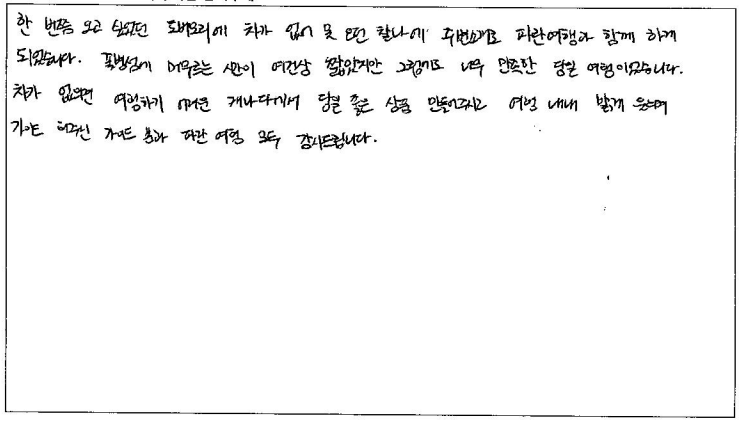 한 번쯤 오고 싶었던 토버모리에 차가 없어 못 오던 찰나에 주변소개로 파란여행과 함께 하게
되었습니다. 꽃병섬에 머무르는 시간이 여건상 짧았지만 그럼에도 너무 만족한 당일 여행이었습니다.
차가 없으면 여행하기 어려운 캐나다에서 당일 좋은 상품 만들어주시고 여행 내내 밝게 웃으며
가이드 해주신 가이드 분과 파란 여행 모두 감사드립니다.